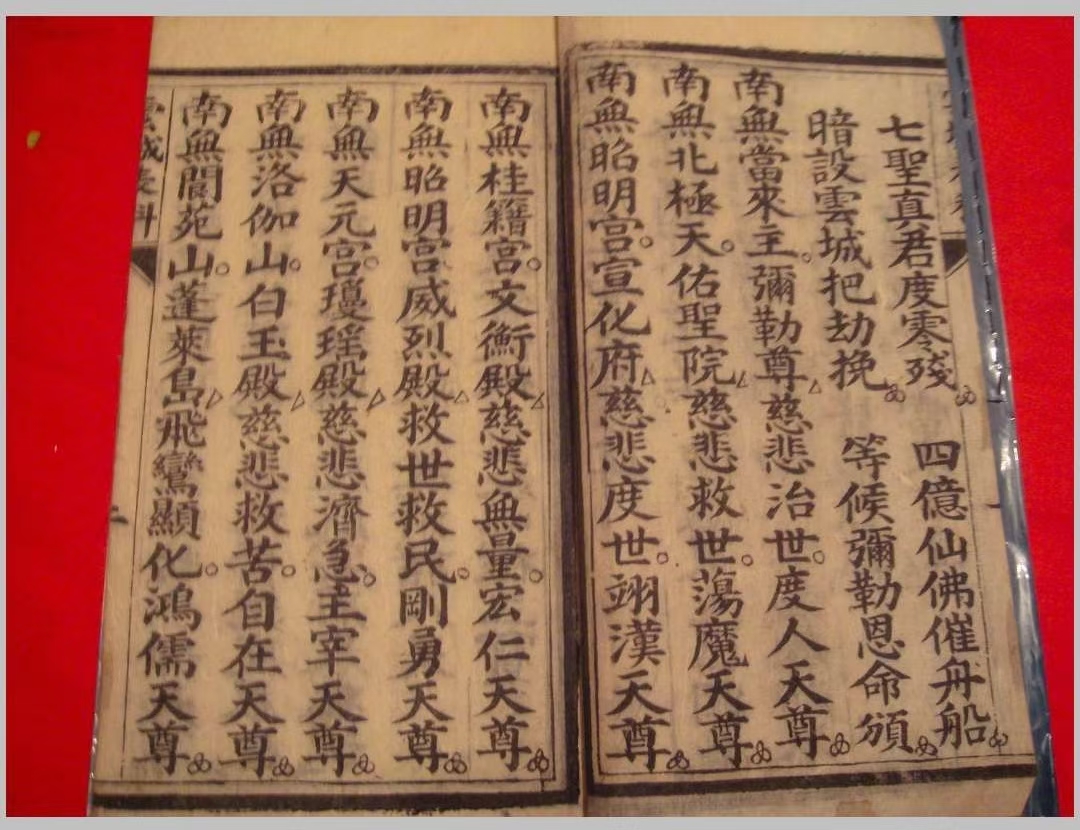 七聖真君度零殘　四億仙佛催舟船
暗設雲城把劫挽　等候彌勒恩命頒
南無當來主彌勒尊慈悲治世度人天尊
南無北極天佑聖院慈悲救世蕩魔天尊
南無昭明宮宣化府慈悲度世翊漢天尊
南無桂籍宮文衡殿慈悲無量宏仁天尊
南無昭明宮威烈殿救世救民剛勇天尊
南無天元宮瓊瑤殿慈悲濟急主宰天尊
南無洛伽山白玉殿慈悲救苦自在天尊
南無閬苑山蓬萊島飛鸞顯化鴻儒天尊